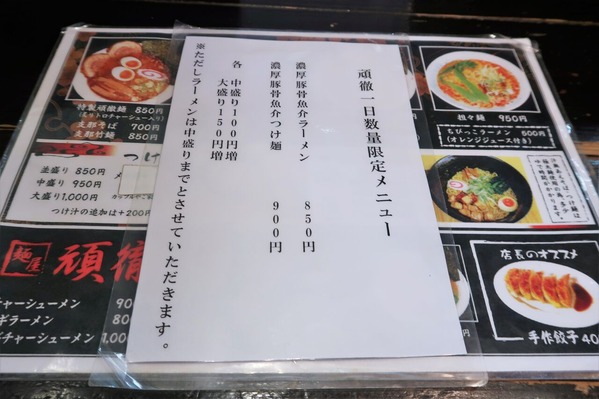 頑徹一日数量限定メニュー
濃厚豚骨魚介ラーメン 850円
濃厚豚骨魚介つけ麺 900円
各 中盛り100円増
大盛り150円増
※ただしラーメンは中盛りまでとさせていただきます。
特製頑徹麺 850円
(炙りトロチャーシュー入り)
支那そば 700円
支那竹麺 850円
つけ
並盛り 850円
中盛り 950円
大盛り1,000円
つけ汁の追加は+200円
麺屋 頑徹
チャーシューメン 900
ギラーメン 80
ギチャーシューメン 1,00
担々麺 950円
ちびっこラーメン 500円
(オレンジジュース付き)
店長のオススメ
手作餃子 40